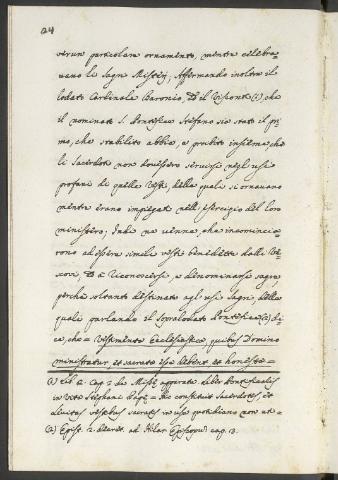 24
verun particolare ornamento, mentre celebra=
vano li Sagri Misterj, Affermando inoltre il
lodato Cardinale Baronio, Ed il Visconti (1), che
il nominato S. Pontefice Stefano sia stato il pri=
mo, che stabilito abbia, e proibito insieme, che
li Sacerdoti non dovessero servirsi negl'usi
profani di quelle Vesti, delle quali si ornavano
mentre erano impiegati nell'esercizio del loro
ministero; Indi ne venne, che incomincia=
rono ad essere simili vesti benedette dalli Ve=
scovi, Ed a riconoscersi, e denominarsi sagre,
perchè soltanto destinate agl'usi Sagri, delle
quali parlando il Sopralodato Pontefice (2) di=
ce, che = Vestimenta Ecclesiastica, quibus Domino
ministratur, et sacrata esse debent et honesta =
(1) Lib. 2. Cap. de Miss. apparatu liber Pontificalis
in vita Stephani Papæ = Hic constituit Sacerdotes, et
Levitas vestibus sacratis in usu quotidiano non uti =
(2) Epist. 1. decret. ad Hilar. Episcopum cap. 3.